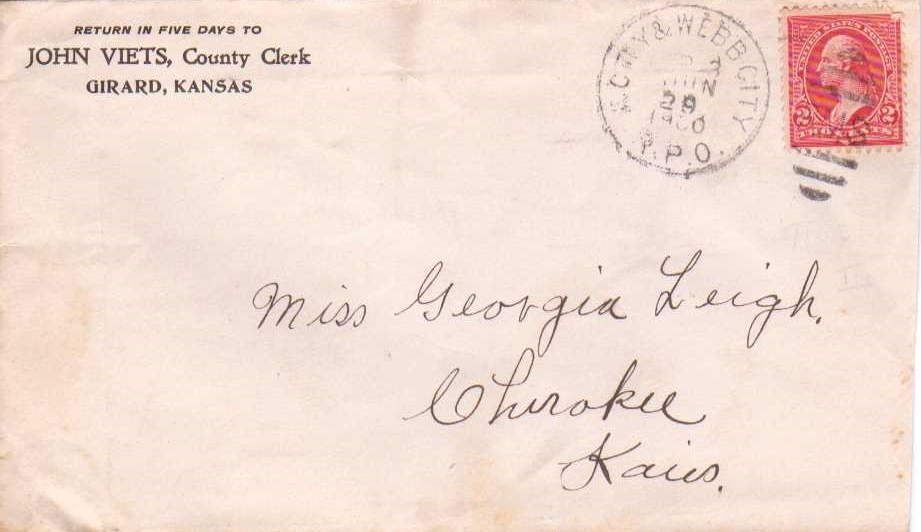 RETURN IN FIVE DAYS TO
JOHN VIETS, County Clerk
GIRARD, KANSAS
K.C. & WEBB CITY
JUN
29
1900
R.P.O.
UNITED STATES POSTAGE
2 2
TWO CENTS
Miss Georgia Leigh,
Cherokee
Kans.